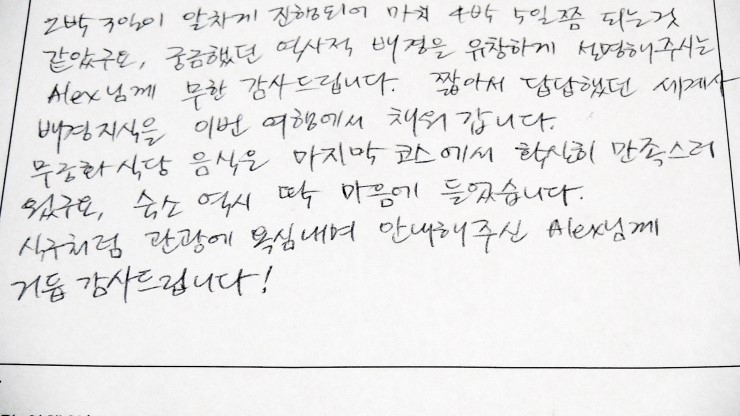 2박 3일이 알차게 진행되어 마치 4박 5일쯤 되는것
같았구요, 궁금했던 역사적 배경을 유창하게 설명해주시는
Alex님께 무한 감사드립니다. 짧아서 답답했던 세계사
배경지식을 이번 여행에서 채워 갑니다.
무궁화식당 음식은 마지막 코스에서 확실히 만족스러
웠구요, 숙소 역시 딱 마음에 들었습니다.
식구처럼 관광에 욕심내며 안내해주신 Alex님께
거듭 감사드립니다!